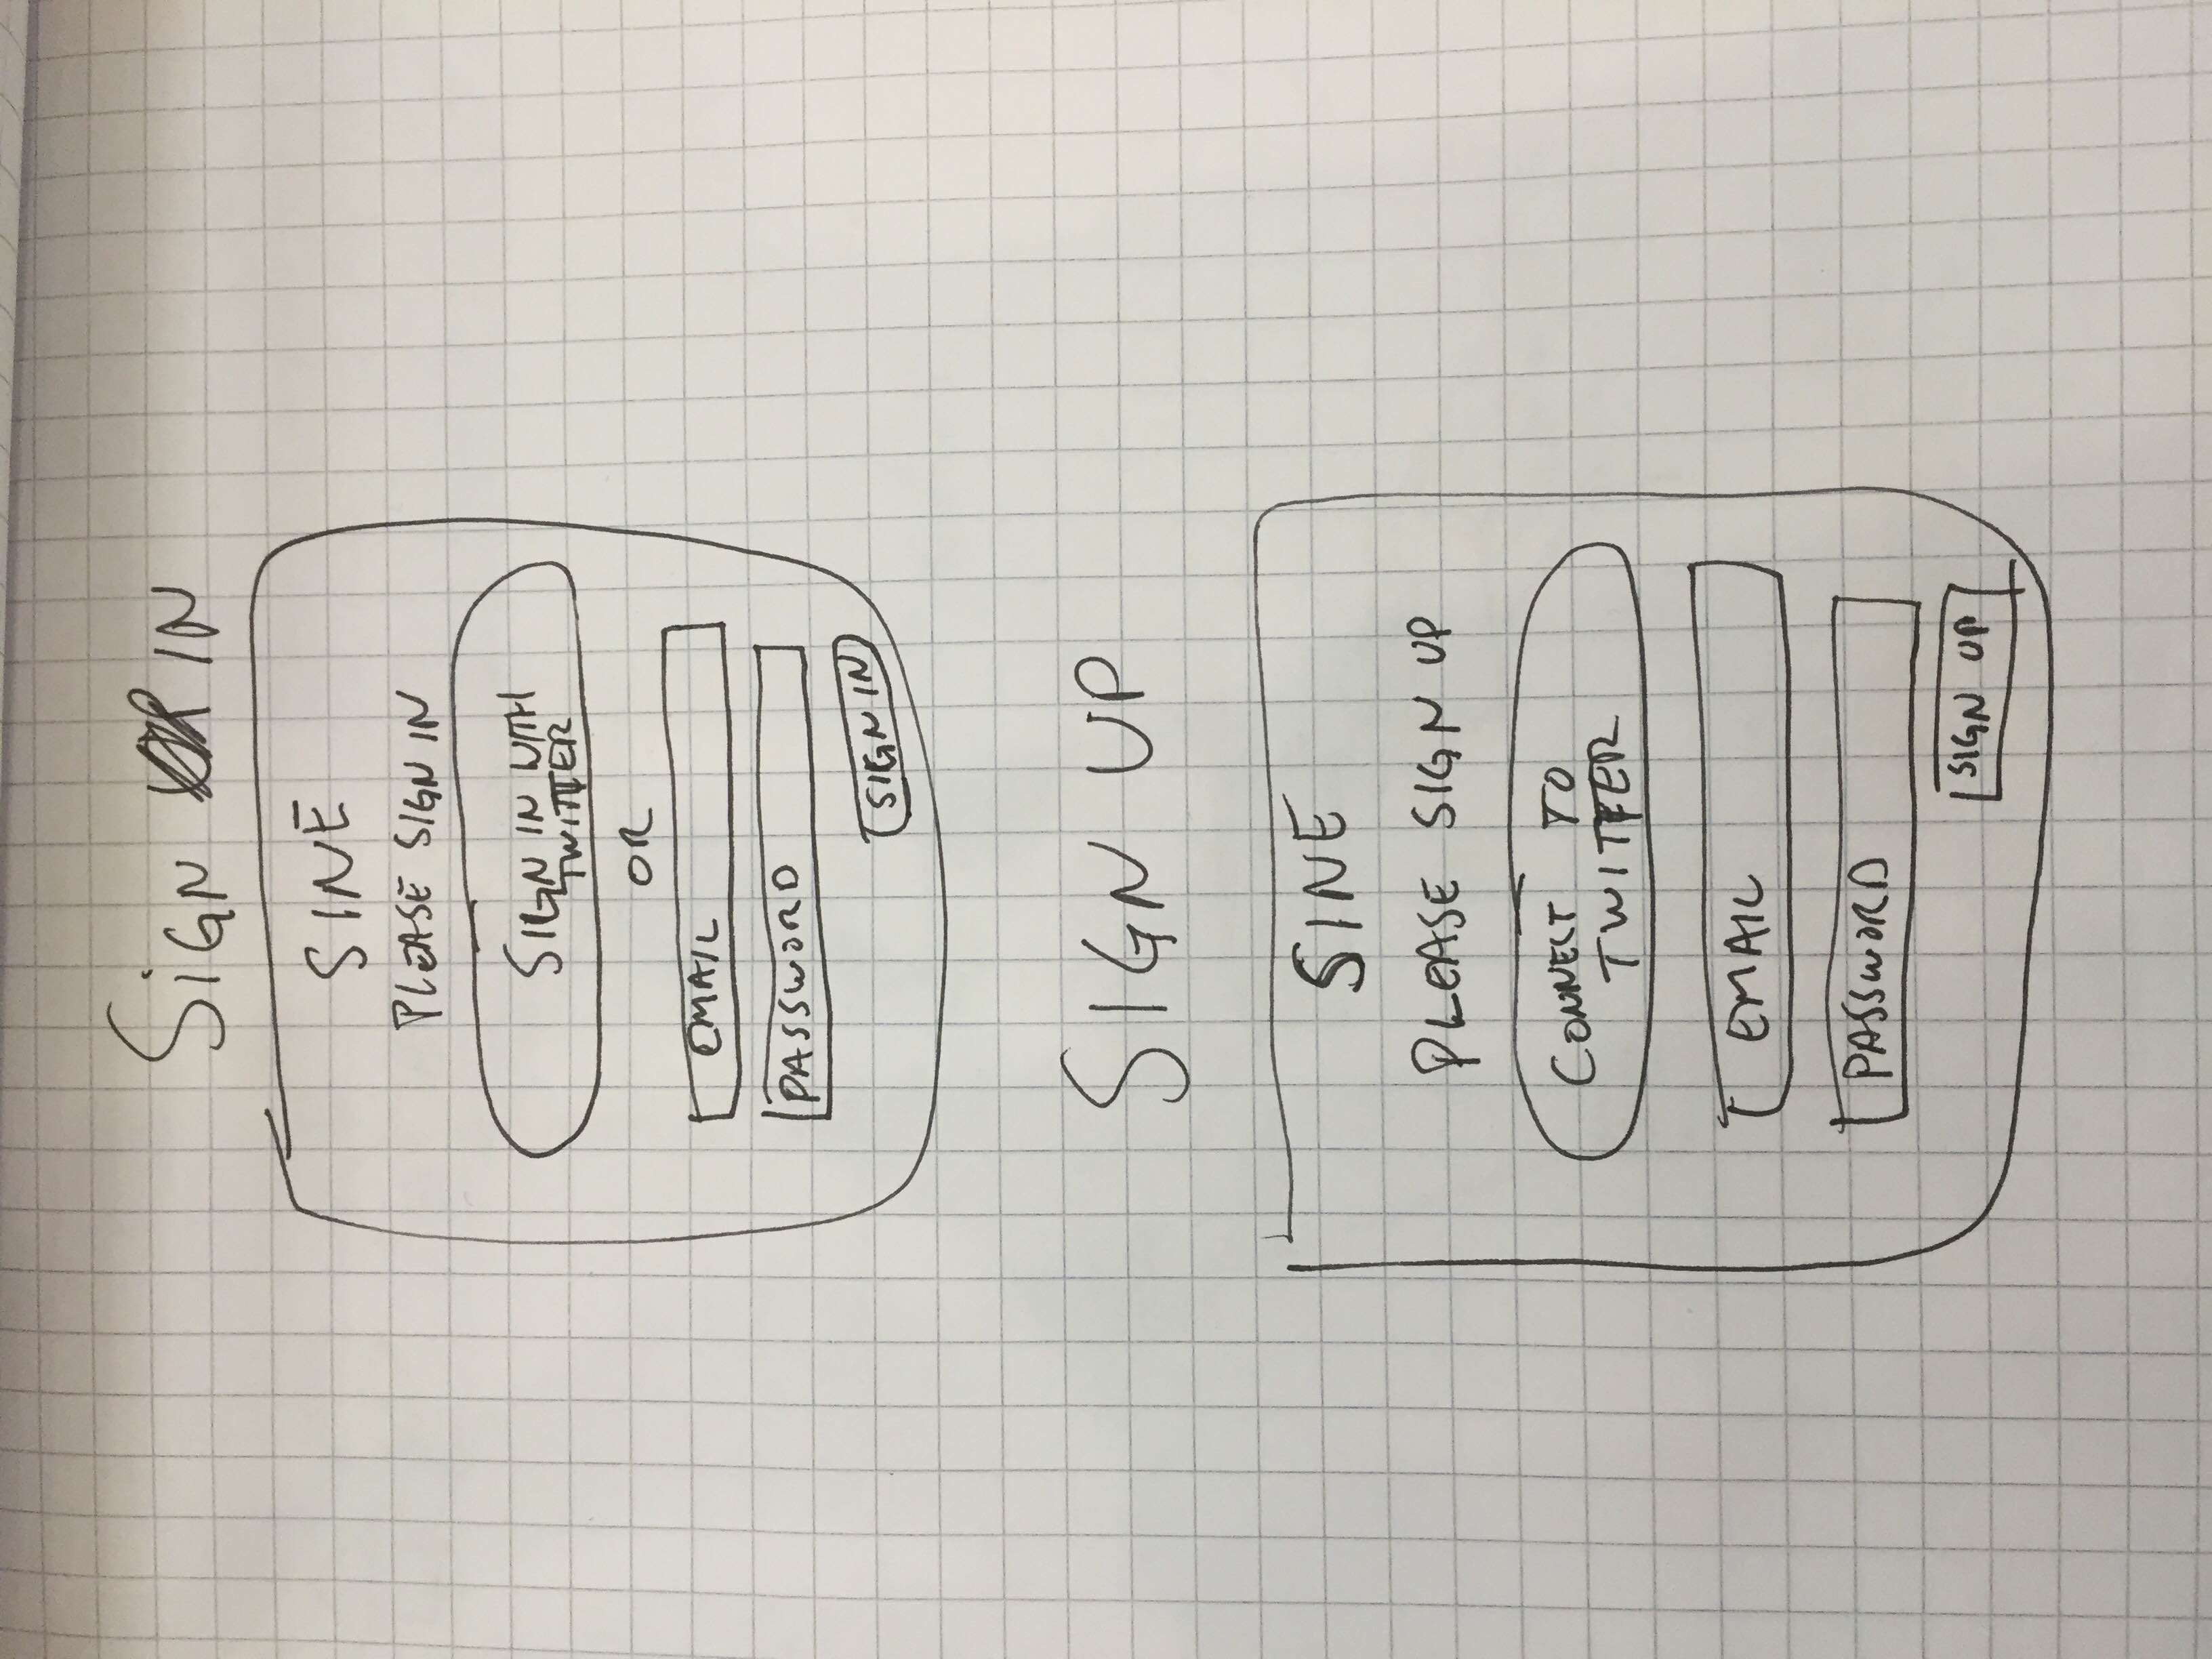 SIGN IN
SINE
PLEASE SIGN IN
SIGN IN WITH
TWITTER
OR
EMAIL
PASSWORD
SIGN IN
SIGN UP
SINE
PLEASE SIGN UP
CONNECT TO
TWITTER
EMAIL
PASSWORD
SIGN UP